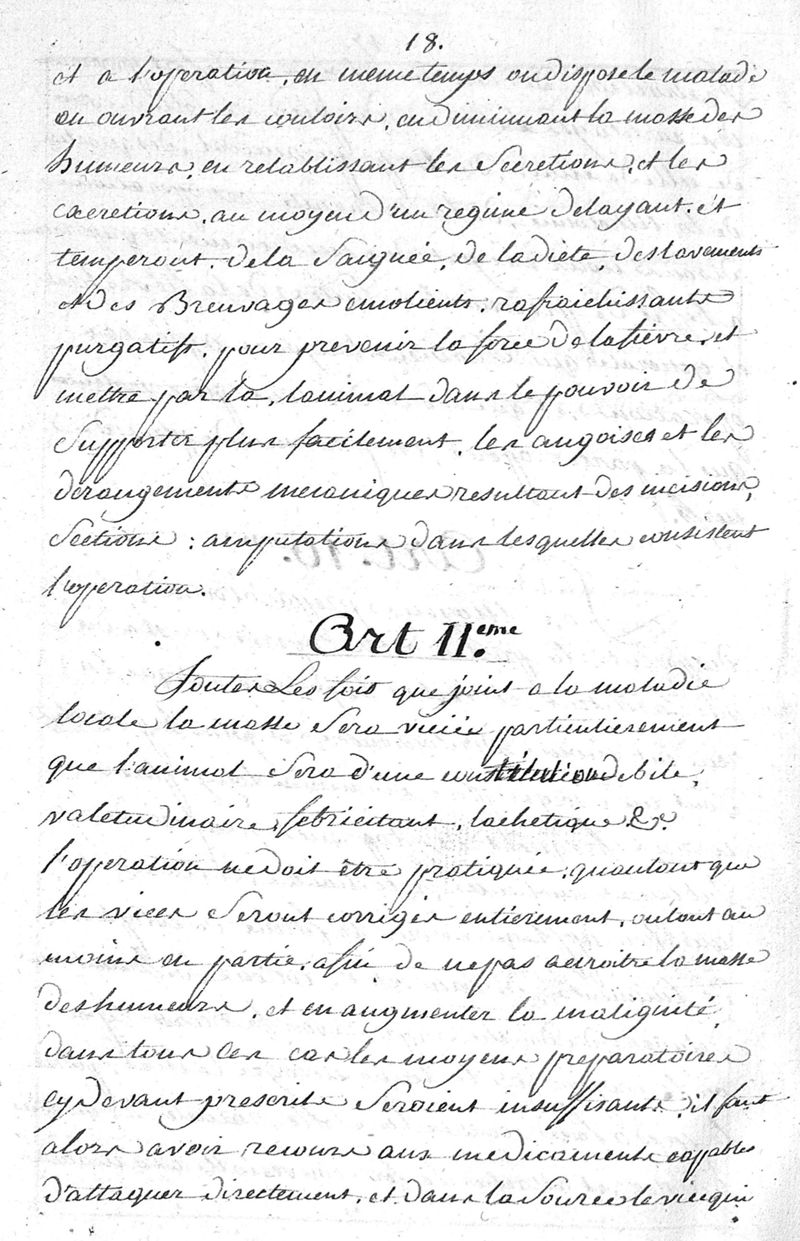 18.
et a l'operation, en meme temps on dispose le malade
en ouvrant les couloirs, en diminuant la masse des
humeurs, en retablissant les Secretions, et les
excretions, au moyen d'un regime delayant, et
temperant, de la Saignée, de la diete, des lavements
et des Breuvages emolients, rafraichissants
purgatifs, pour prevenir la force de la fièvre, et
mettre par la, l'animal dans le pouvoir de
Supporter plus facilement, les angoises et les
derangements mecaniques resultant des incisions,
Sections, amputations dans lesquelles consistent
l'operation.
Art 11.eme
Toutes Les fois que joint a la maladie
locale la masse Sera viciée particulierement
que l'animal Sera d'une constitution debile,
valetudinaire, febricitant, cachetique &c.
l'operation ne doit être pratiquée, qu'autant que
les vices Seront corrigés entierement, ou tout au
moins en partie, afin de ne pas accroitre la masse
des humeurs, et en augmenter la malignité,
dans tous ces cas les moyens preparatoires
cy devant prescrits Seroient insuffisants, il faut
alors avoir recours aux medicaments capables
d'attaquer directement, et dans la Source le vice qui